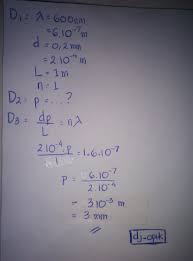 D1 = λ = 600 nm
= 6.10⁻⁷ m
d = 0,2 mm
= 2.10⁻⁴ m
L = 1 m
n = 1
D2 = p = ....?
D3 = dp/L = nλ
2.10⁻⁴.p/1 = 1.6.10⁻⁷
p = 6.10⁻⁷/2.10⁻⁴
= 3.10⁻³ m
= 3 mm
dj-optk